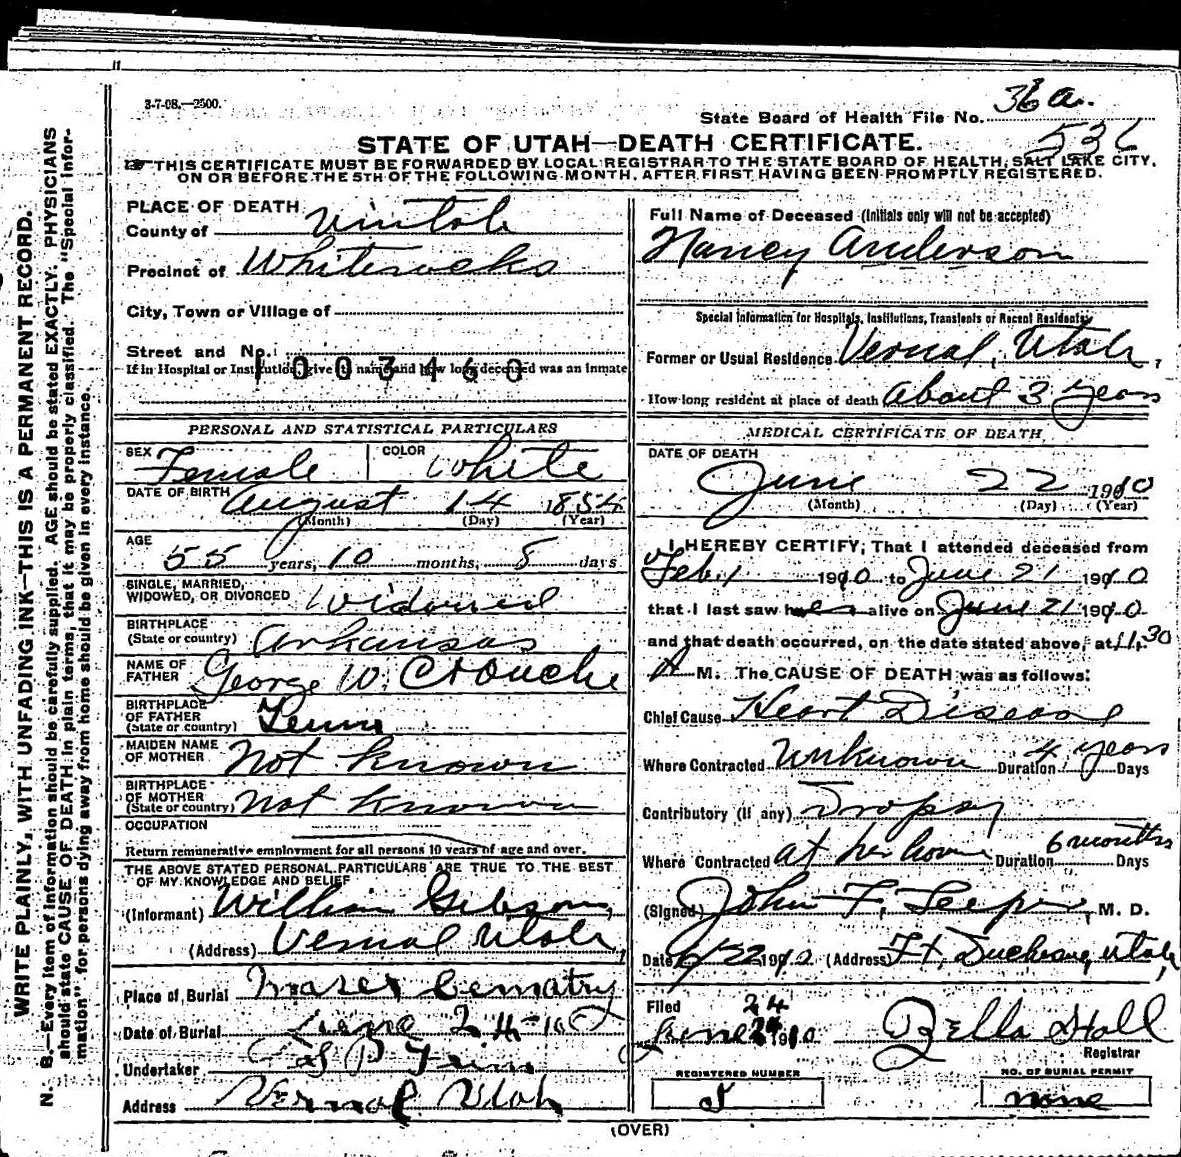 3-7-08.—2500.
36 a.
State Board of Health File No.
536
STATE OF UTAH—DEATH CERTIFICATE.
THIS CERTIFICATE MUST BE FORWARDED BY LOCAL REGISTRAR TO THE STATE BOARD OF HEALTH, SALT LAKE CITY,
ON OR BEFORE THE 5TH OF THE FOLLOWING MONTH, AFTER FIRST HAVING BEEN PROMPTLY REGISTERED.
WRITE PLAINLY, WITH UNFADING INK—THIS IS A PERMANENT RECORD.
N. B.—Every item of information should be carefully supplied. AGE should be stated EXACTLY. PHYSICIANS
should state CAUSE OF DEATH in plain terms, that it may be properly classified. The "Special Infor-
mation" for persons dying away from home should be given in every instance.
PLACE OF DEATH
County of Uintah
Precinct of Whiterocks
City, Town or Village of
Street and No.
If in Hospital or Institution, give its name and how long deceased was an inmate
1003463
PERSONAL AND STATISTICAL PARTICULARS
SEX Female COLOR White
DATE OF BIRTH August 14 1854
(Month) (Day) (Year)
AGE
55 years, 10 months, 8 days
SINGLE, MARRIED,
WIDOWED, OR DIVORCED Widowed
BIRTHPLACE
(State or country) Arkansas
NAME OF
FATHER George W. Crouch
BIRTHPLACE
OF FATHER
(State or country) Tenn
MAIDEN NAME
OF MOTHER Not Known
BIRTHPLACE
OF MOTHER
(State or country) Not Known
OCCUPATION
Return remunerative employment for all persons 10 years of age and over.
THE ABOVE STATED PERSONAL PARTICULARS ARE TRUE TO THE BEST
OF MY KNOWLEDGE AND BELIEF
(Informant) William Gibson,
(Address) Vernal Utah,
Place of Burial Maser Cematry
Date of Burial June 24-10
Undertaker S P
Address Vernal Utah
Full Name of Deceased (Initials only will not be accepted)
Nancy Anderson
Special Information for Hospitals, Institutions, Transients or Recent Residents:
Former or Usual Residence Vernal, Utah,
How long resident at place of death About 3 years
MEDICAL CERTIFICATE OF DEATH
DATE OF DEATH
June 22 1910
(Month) (Day) (Year)
I HEREBY CERTIFY, That I attended deceased from
Feb. 1 1910 to June 21 1910
that I last saw her alive on June 21 1910
and that death occurred, on the date stated above, at 11.30
A M. The CAUSE OF DEATH was as follows:
Chief Cause Heart Disease
Where Contracted Unknown Duration 4 years Days
Contributory (if any) Dropsy
Where Contracted at her home Duration 6 months Days
(Signed) John F. M. D.
Date 6/22 1910 (Address) Ft. Duchesne, Utah,
Filed 24
June 24 1910 Zella Hall
Registrar
REGISTERED NUMBER
5
NO. OF BURIAL PERMIT
none
(OVER)